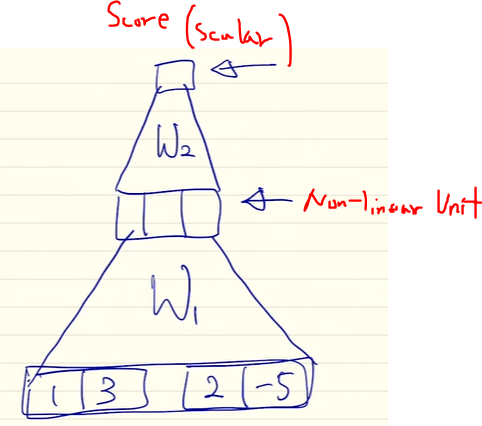 Score (scalar)
W₂
Non-linear Unit
W₁
1 3 2 -5